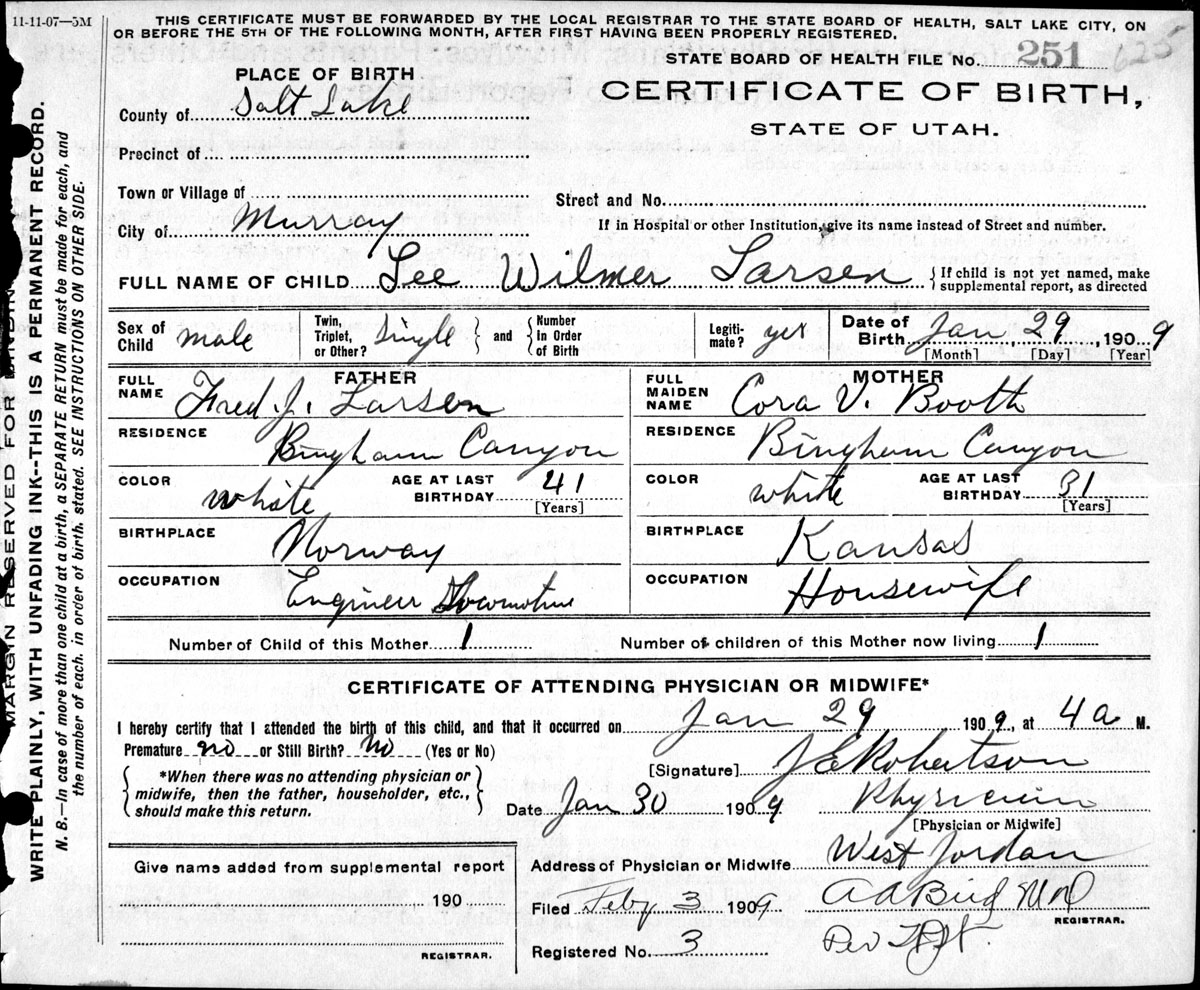 11-11-07—5M
THIS CERTIFICATE MUST BE FORWARDED BY THE LOCAL REGISTRAR TO THE STATE BOARD OF HEALTH, SALT LAKE CITY, ON
OR BEFORE THE 5TH OF THE FOLLOWING MONTH, AFTER FIRST HAVING BEEN PROPERLY REGISTERED.
STATE BOARD OF HEALTH FILE No. 251 625
PLACE OF BIRTH
CERTIFICATE OF BIRTH,
STATE OF UTAH.
County of Salt Lake
Precinct of
Town or Village of
Street and No.
City of Murray
If in Hospital or other Institution, give its name instead of Street and number.
FULL NAME OF CHILD Lee Wilmer Larsen { If child is not yet named, make supplemental report, as directed
Sex of Child male Twin, Triplet, or Other? Single } and { Number In Order of Birth Legiti- mate? yes Date of Birth Jan 29, 1909
[Month] [Day] [Year]
FATHER
FULL NAME Fred. J. Larsen
RESIDENCE Bingham Canyon
COLOR white AGE AT LAST BIRTHDAY 41 [Years]
BIRTHPLACE Norway
OCCUPATION Engineer Locomotive
MOTHER
FULL MAIDEN NAME Cora V. Booth
RESIDENCE Bingham Canyon
COLOR white AGE AT LAST BIRTHDAY 31 [Years]
BIRTHPLACE Kansas
OCCUPATION Housewife
Number of Child of this Mother 1 Number of children of this Mother now living 1
CERTIFICATE OF ATTENDING PHYSICIAN OR MIDWIFE*
I hereby certify that I attended the birth of this child, and that it occurred on Jan 29 1909, at 4a M.
Premature no or Still Birth? No (Yes or No)
{ *When there was no attending physician or
midwife, then the father, householder, etc.,
should make this return. }
[Signature] J E Robertson
Date Jan 30 1909 Physician
[Physician or Midwife]
Give name added from supplemental report
190
REGISTRAR.
Address of Physician or Midwife West Jordan
Filed Feby 3 1909 A A Bird MD
REGISTRAR.
Registered No. 3 Per
MARGIN RESERVED FOR BINDING
WRITE PLAINLY, WITH UNFADING INK--THIS IS A PERMANENT RECORD.
N. B.—In case of more than one child at a birth, a SEPARATE RETURN must be made for each, and
the number of each, in order of birth, stated. SEE INSTRUCTIONS ON OTHER SIDE.